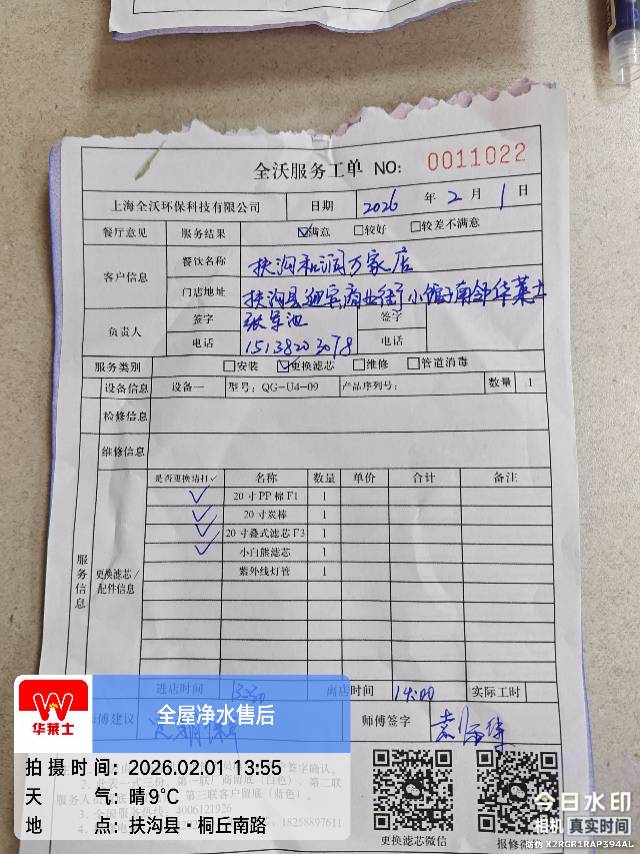 全沃服务工单 NO: 0011022
上海全沃环保科技有限公司 日期 2026 年 2 月 1 日
餐厅意见 服务结果 ☑满意 □较好 □较差不满意
客户信息 餐饮名称 扶沟和润万家店
门店地址 扶沟县迎宾商业街 南邻华莱士
负责人 签字 签字
电话 15138203078 电话
服务类别 □安装 ☑更换滤芯 □维修 □管道消毒
设备信息 设备一 型号: QG-U4-09 产品序列号: 数量 1
检修信息
维修信息
服务信息
更换滤芯/配件信息
是否更换请打✓ 名称 数量 单价 合计 备注
✓ 20寸PP棉F1 1
✓ 20寸炭棒 1
✓ 20寸叠式滤芯F3 1
✓ 小白熊滤芯 1
紫外线灯管 1
进店时间 离店时间 14:00 实际工时
师傅建议 师傅签字
签字确认。
第一联厂商留底(白色)、第二联
第三联客户留底(蓝色)。
全国服务热线: 4006121926
18258897611
更换滤芯微信
华莱士
全屋净水售后
拍摄时间: 2026.02.01 13:55
天气: 晴9℃
地点: 扶沟县·桐丘南路
今日水印
相机 真实时间
防伪 X2RGR1RAP394AL